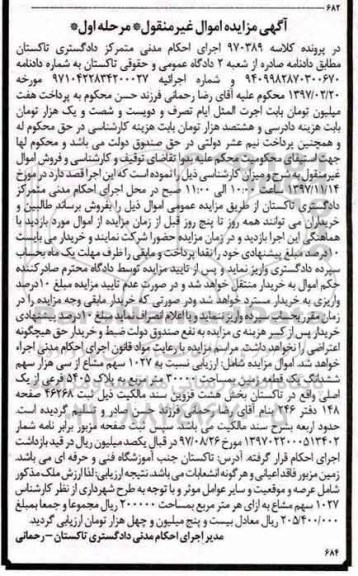 ۶۸۲
آگهی مزایده اموال غیرمنقول* مرحله اول*
در پرونده کلاسه ۹۷۰۳۸۹ اجرای احکام مدنی متمرکز دادگستری تاکستان
مطابق دادنامه صادره از شعبه ۲ دادگاه عمومی و حقوقی تاکستان به شماره دادنامه
۹۴۰۹۹۸۲۸۷۰۳۰۰۶۷۰ و شماره اجرائیه ۹۷۱۰۴۲۲۸۳۴۲۰۰۰۲۷ مورخه
۱۳۹۷/۰۲/۲۰ محکوم علیه آقای رضا رحمانی فرزند حسن محکوم به پرداخت هفت
میلیون تومان بابت اجرت المثل ایام تصرف و دویست و شصت و یک هزار تومان
بابت هزینه دادرسی و هشتصد هزار تومان بابت هزینه کارشناسی در حق محکوم له
و همچنین پرداخت نیم عشر دولتی در حق صندوق دولت می باشد و محکوم لها
جهت استیفای محکومیت محکم علیه بدوا تقاضای توقیف و کارشناسی و فروش اموال
غیرمنقول به شرح و میزان کارشناسی ذیل را نموده است که این اجرا قصد دارد در مورخ
۱۳۹۷/۱۱/۱۴ ساعت ۱۰:۰۰ الی ۱۱:۰۰ صبح در محل اجرای احکام مدنی متمرکز
دادگستری تاکستان از طریق مزایده عمومی اموال ذیل را بفروش برساند طالبین و
خریداران می توانند همه روز تا پنج روز قبل از زمان مزایده از اموال مورد بازدید با
هماهنگی این اجرا بازدید و در زمان مزایده حضورا شرکت نمایند و خریدار می بایست
۱۰ درصد مبلغ پیشنهادی خود را نقدا پرداخت و مابقی را ظرف مهلت یک ماه بحساب
سپرده دادگستری واریز نماید و پس از تایید مزایده توسط دادگاه محترم صادرکننده
حکم اموال به خریدار منتقل خواهد شد و در صورت عدم تایید مزایده مبلغ ۱۰ درصد
واریزی به خریدار مسترد خواهد شد ودر صورتی که خریدار مابقی وجه مزایده را در
زمان مقرر بحساب سپرده واریز ننماید و یا اعلام انصراف نماید مبلغ ۱۰ درصد پیشنهادی
خریدار پس از کسر هزینه ی مزایده به نفع صندوق دولت ضبط و خریدار حق هیچگونه
اعتراضی را نخواهد داشت. مراسم مزایده با رعایت مواد قانون اجرای احکام مدنی اجراء
خواهد شد. اموال مزایده شامل: ارزیابی نسبت به ۱۰۲۷ سهم مشاع از سی هزار سهم
ششدانگ یک قطعه زمین بمساحت ۳۰۰۰۰ متر مربع به پلاک ۵۴۰۵ فرعی از یک
اصلی واقع در تاکستان بخش هشت قزوین سند مالکیت ذیل ثبت ۴۶۲۶۸ صفحه
۱۴۸ دفتر ۲۴۶ بنام آقای رضا رحمانی فرزند حسن صادر و تسلیم گردیده است.
حدود اربعه بشرح سند مالکیت می باشد سپس ثبت صفحه مزبور برابر نامه شمار
۱۳۹۷۰۲۲۰۰۰۵۱۳۴۰۲ مورخ ۹۷/۰۸/۲۶ در قبال یکصد میلیون ریال در قید بازداشت
اجرای احکام قرار گرفته. آدرس: تاکستان جنب آموزشگاه فنی و حرفه ای می باشد.
زمین مزبور فاقد اعیانی و هرگونه انشعابات می باشد. نتیجه ارزیابی: لذا ارزش ملک مذکور
شامل عرصه و موقعیت و سایر عوامل موثر و با توجه به طرح شهرداری از نظر کارشناس
۱۰۲۷ سهم مشاع به ازای هر متر مربع بمساحت ۲۰۰۰۰۰ ریال مجموعا و جمعا بمبلغ
۲۰۵/۴۰۰/۰۰۰ ریال معادل بیست و پنج میلیون و چهل هزار تومان ارزیابی گردید.
مدیر اجرای احکام مدنی دادگستری تاکستان – رحمانی
۶۸۴